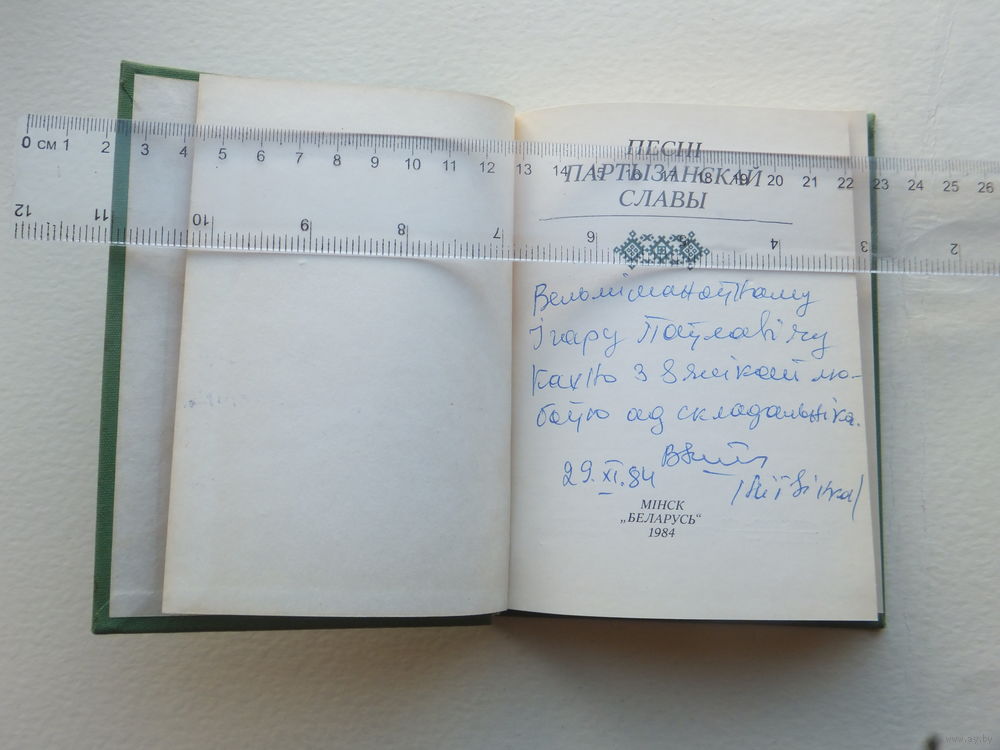 0 см 1 2 3 4 5 6 7 8 9 10 11 12 13 14 15 16 17 18 19 20 21 22 23 24 25 26
12 11 10 9 8 7 6 5 4 3 2
ПЕСНІ
ПАРТЫЗАНСКАЙ
СЛАВЫ
Вельмішаноўнаму
Ігару Паўлавічу
з вялікай лю-
боўю ад складальніка.
29.XI.84
МІНСК
„БЕЛАРУСЬ“
1984
www.ay.by